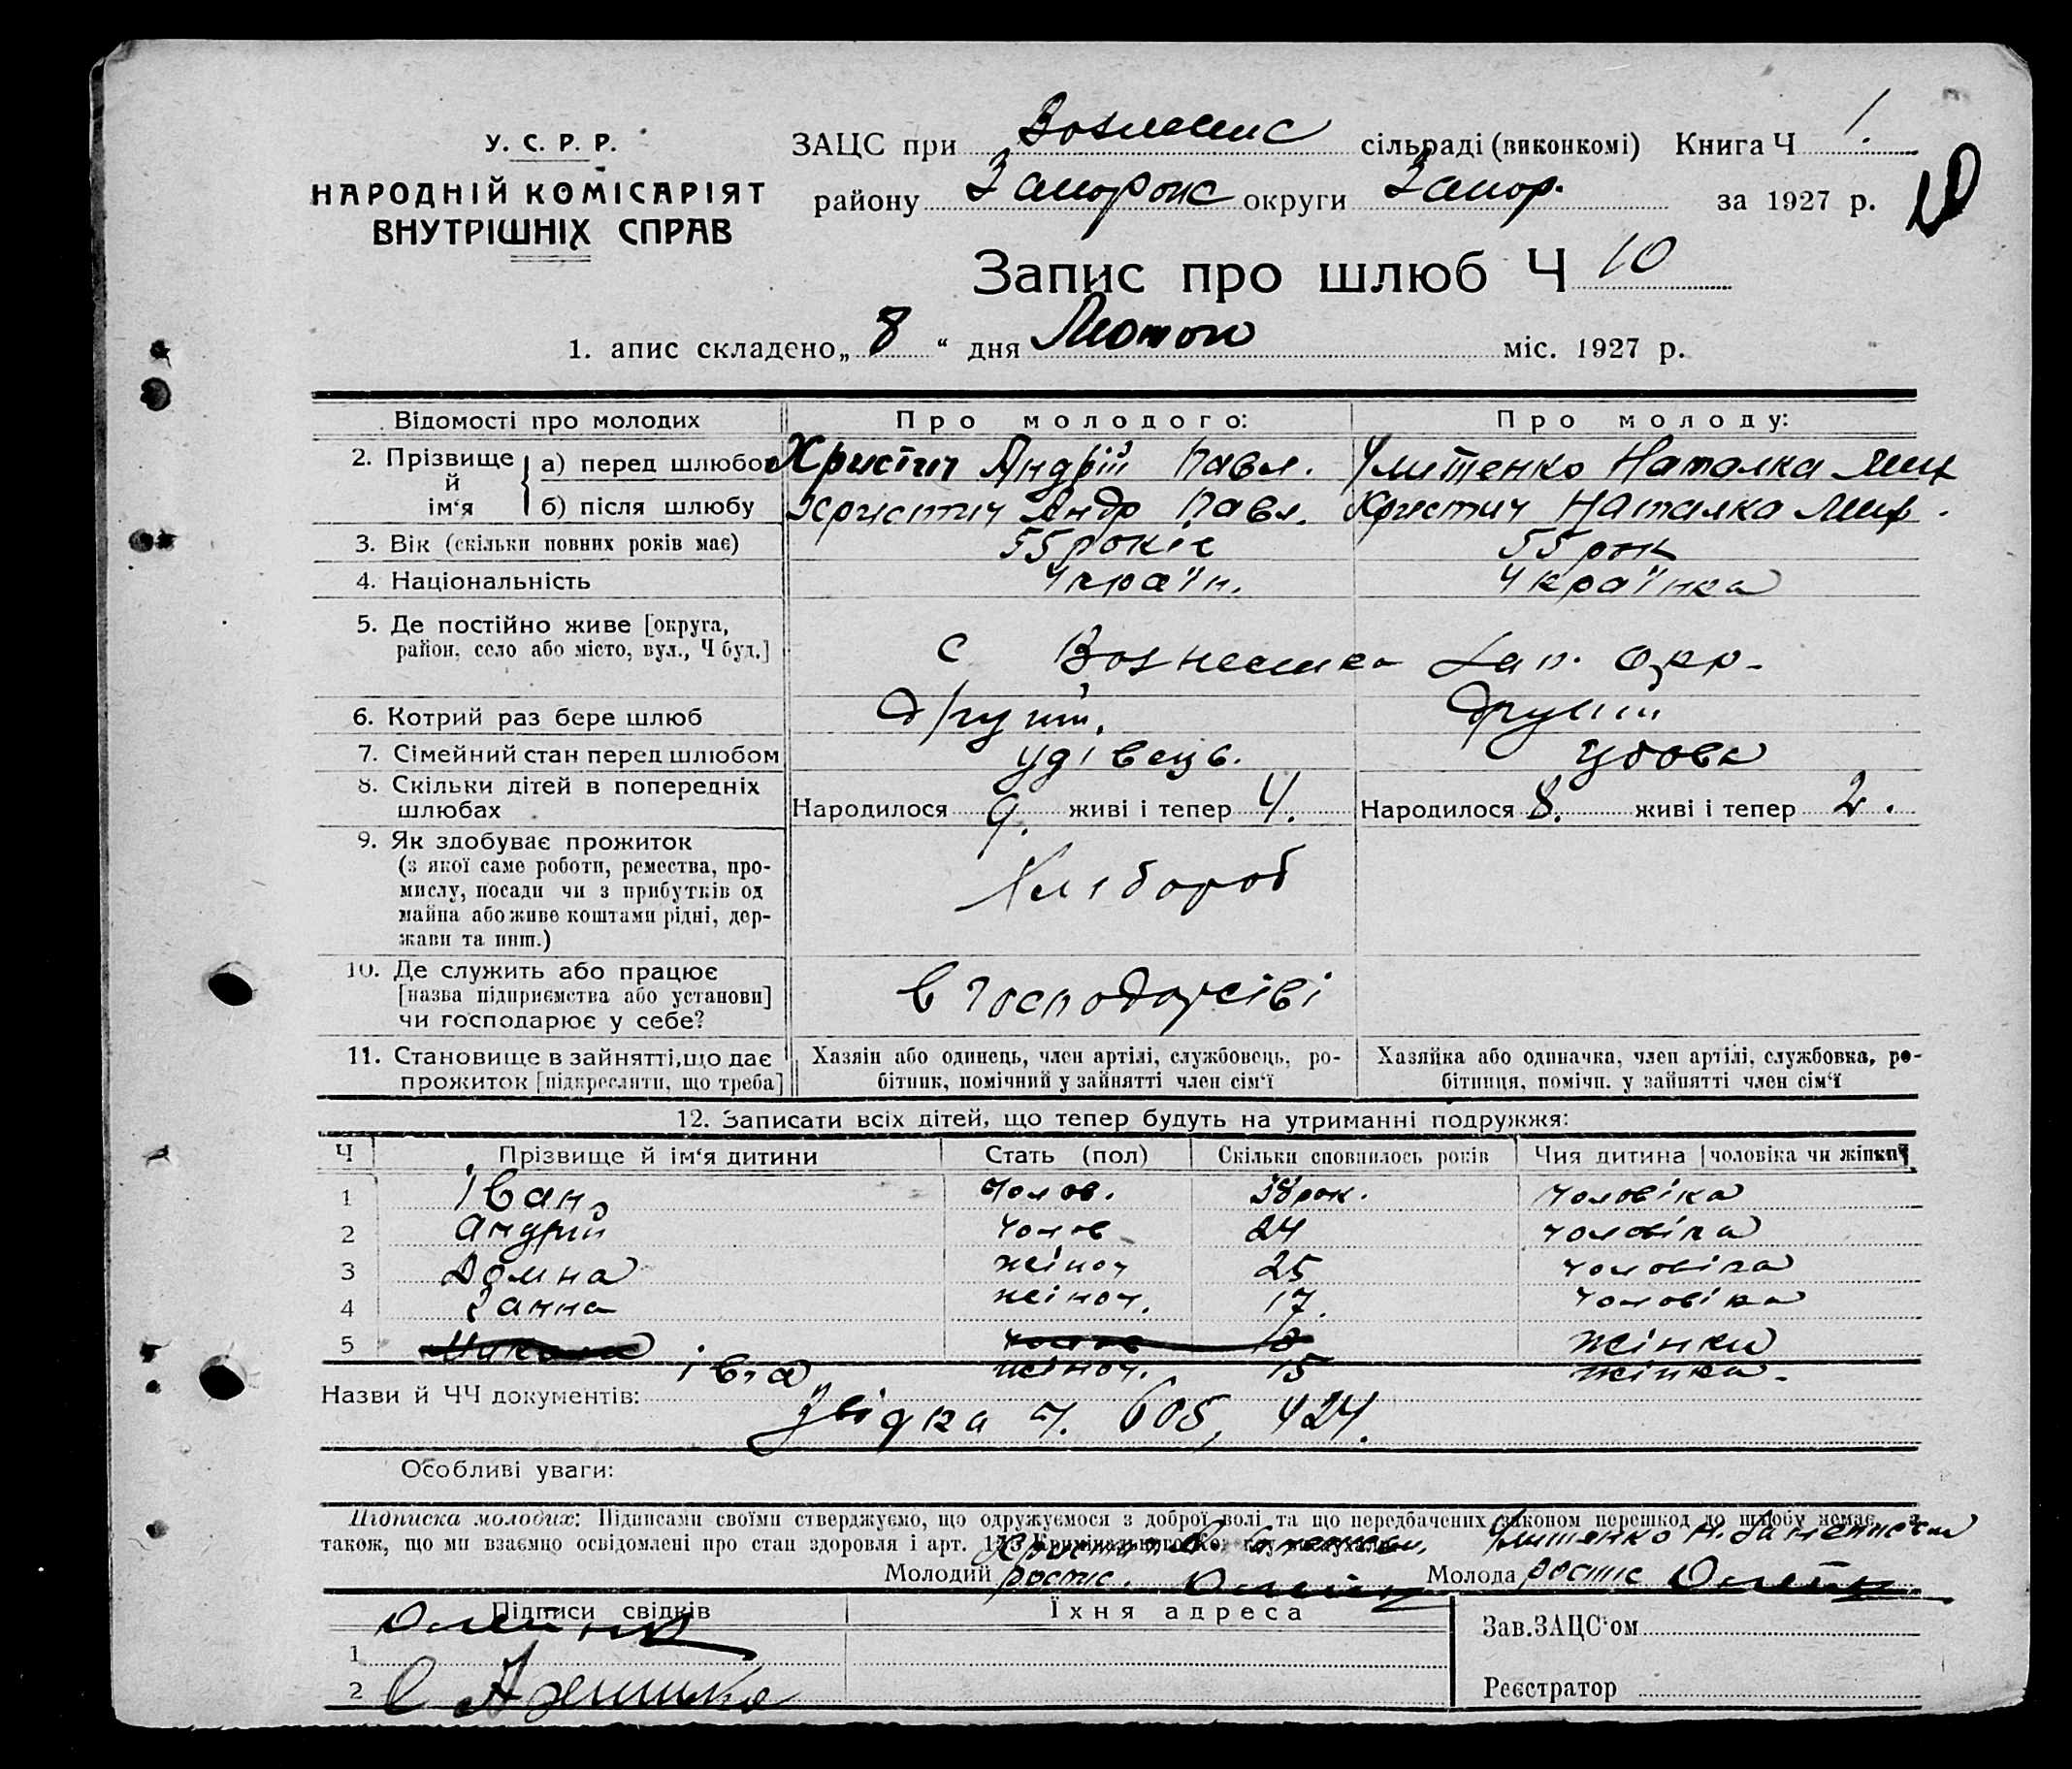 У. С. Р. Р.
НАРОДНІЙ КОМІСАРІЯТ
ВНУТРІШНІХ СПРАВ
ЗАЦС при Вознесенс сільраді (виконкомі) Книга Ч 1.
району Запорож округи Запор. за 1927 р.
10
Запис про шлюб Ч 10
1. апис складено „ 8 “ дня Лютого міс. 1927 р.
Відомості про молодих Про молодого: Про молоду:
2. Прізвище й ім‘я а) перед шлюбом Христич Андрій Павл. Улитенко Наталка
б) після шлюбу Христич Андр Павл. Христич Наталка
3. Вік (скільки повних років має) 55 років 55 рок
4. Національність Україн. Українка
5. Де постійно живе [округа,
район, село або місто, вул., Ч буд.] с Вознесенка Зап. окр.
6. Котрий раз бере шлюб другий. другий
7. Сімейний стан перед шлюбом удівець. удова
8. Скільки дітей в попередніх
шлюбах Народилося 9. живі і тепер 4. Народилося 8. живі і тепер 2.
9. Як здобуває прожиток
(з якої саме роботи, ремества, про-
мислу, посади чи з прибутків од
майна або живе коштами рідні, дер-
жави та инш.) Хлібороб
10. Де служить або працює
[назва підприємства або установи]
чи господарює у себе? в господарстві
11. Становище в зайнятті, що дає
прожиток [підкреслити, що треба]
Хазяін або одинець, член артілі, службовець, ро-
бітник, помічний у зайнятті член сім‘ї
Хазяйка або одиначка, член артілі, службовка, ро-
бітниця, помічн. у зайнятті член сім‘ї
12. Записати всіх дітей, що тепер будуть на утриманні подружжя:
Ч Прізвище й ім‘я дитини Стать (пол) Скільки сповнилось років Чия дитина [чоловіка чи жінки]
1 Іван чолов. рок. чоловіка
2 Андрій чолов 24 чоловіка
3 Домна жіноч 25 чоловіка
4 Ганна жіноч. 17. чоловіка
5 Микола чолов жінки
жіноч. 15 жінка.
Назви й ЧЧ документів: Звідка ч. 605, 424.
Особливі уваги:
Підписка молодих: Підписами своїми стверджуємо, що одружуємося з доброї волі та що передбачених законом перешкод до шлюбу немає, а
також, що ми взаємно освідомлені про стан здоровля і арт.
Улитенко Н.
Молодий роспис. Олейник Молода роспис Олейник
Підписи свідків Їхня адреса
Олейник
1
2
Зав. ЗАЦС‘ом
Реєстратор